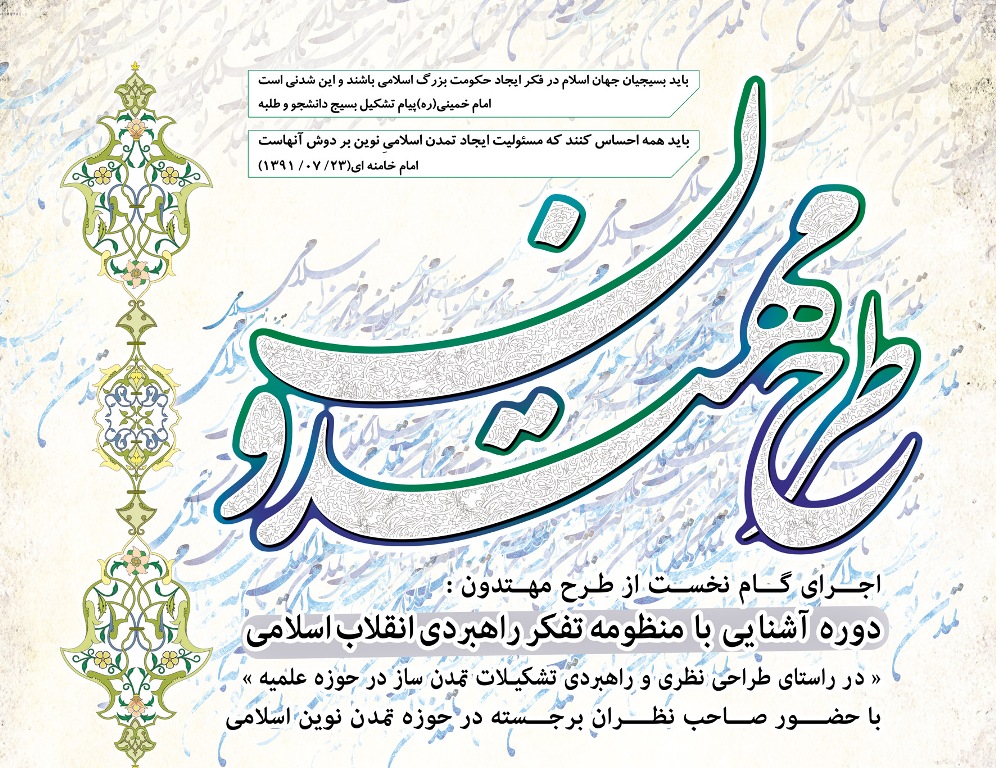 باید بسیجیان جهان اسلام در فکر ایجاد حکومت بزرگ اسلامی باشند و این شدنی است
امام خمینی(ره)پیام تشکیل بسیج دانشجو و طلبه
باید همه احساس کنند که مسئولیت ایجاد تمدن اسلامیِ نوین بر دوش آنهاست
امام خامنه ای(۲۳/ ۰۷/ ۱۳۹۱)
طرح مهتدون
اجرای گام نخست از طرح مهتدون :
دوره آشنایی با منظومه تفکر راهبردی انقلاب اسلامی
« در راستای طراحی نظری و راهبردی تشکیلات تمدن ساز در حوزه علمیه »
با حضور صاحب نظران برجسته در حوزه تمدن نوین اسلامی